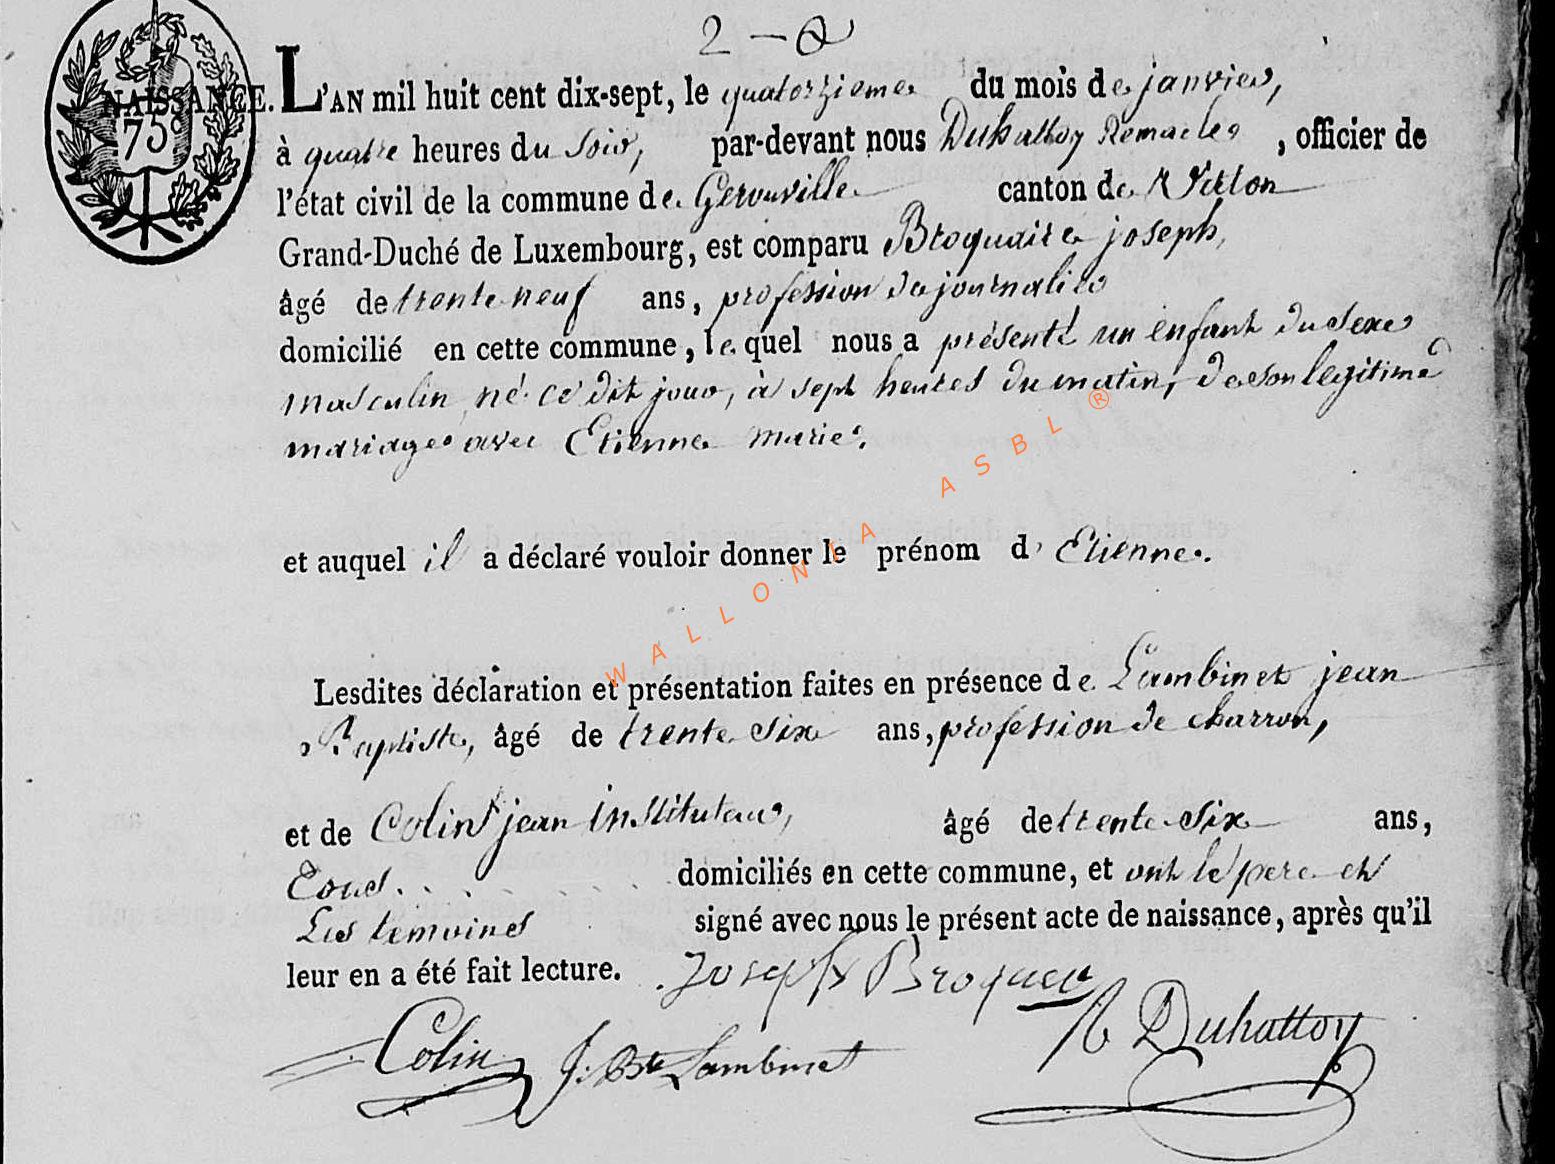 2 —
NAISSANCE. L'AN mil huit cent dix-sept, le quatorzieme du mois de janvier,
75c
à quatre heures du soir, par-devant nous Duhattoy Remacle, officier de
l'état civil de la commune de Gerouville canton de Virton
Grand-Duché de Luxembourg, est comparu Broquaire joseph,
âgé de trente neuf ans, profession de journalier
domicilié en cette commune, le quel nous a présenté un enfant du sexe
masculin né ce dit jour, à sept heures du matin, de son legitime
mariage avec Etienne marie.
et auquel il a déclaré vouloir donner le prénom d' Etienne.
Lesdites déclaration et présentation faites en présence de Lambinet jean
Baptiste, âgé de trente six ans, profession de charron,
et de Colin jean instituteur, âgé de trente six ans,
tous . . . . . . . . domiciliés en cette commune, et ont le pere et
Les temoins signé avec nous le présent acte de naissance, après qu'il
leur en a été fait lecture. Joseph Broquer
R Duhattoy
Colin J. Bte Lambinet
WALLONIA ASBL ®